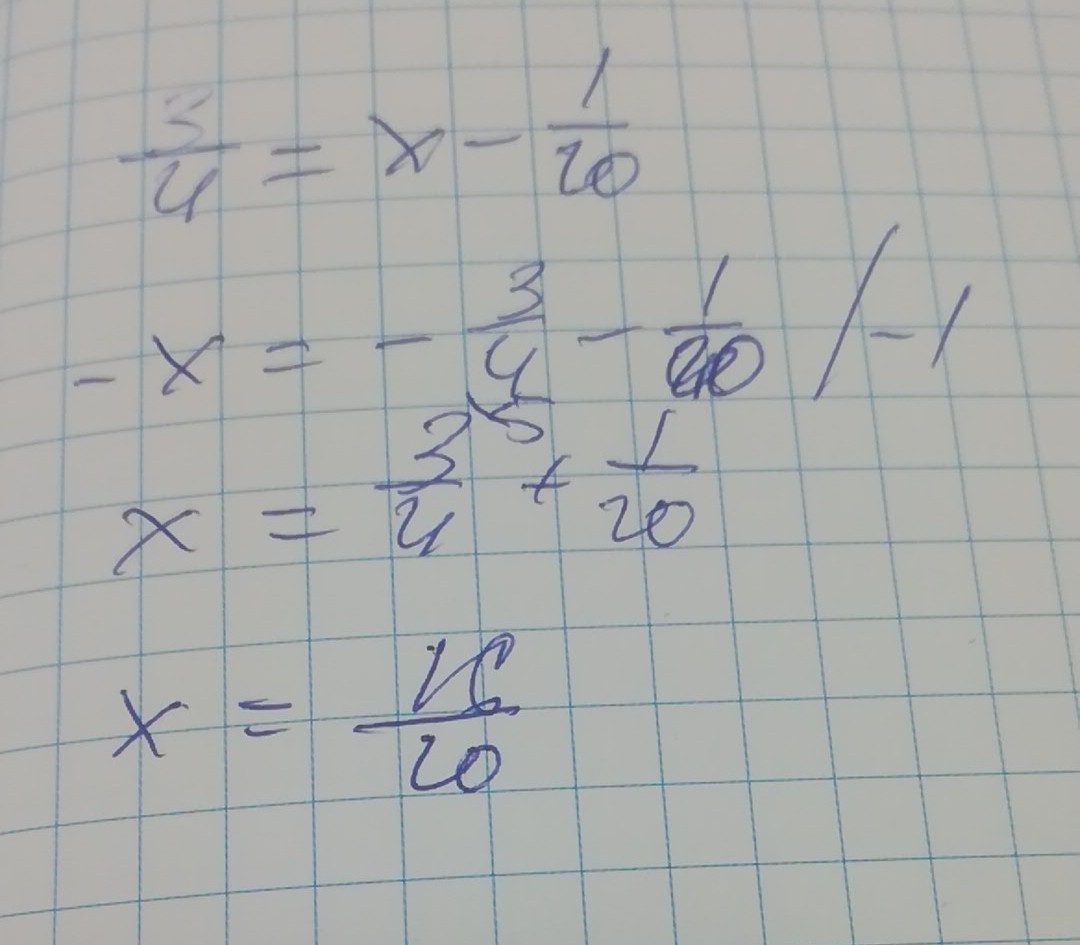 3/4 = x - 1/20
- x = - 3/4 - 1/20 / -1
x = 3/4 \5 + 1/20
x = 16/20